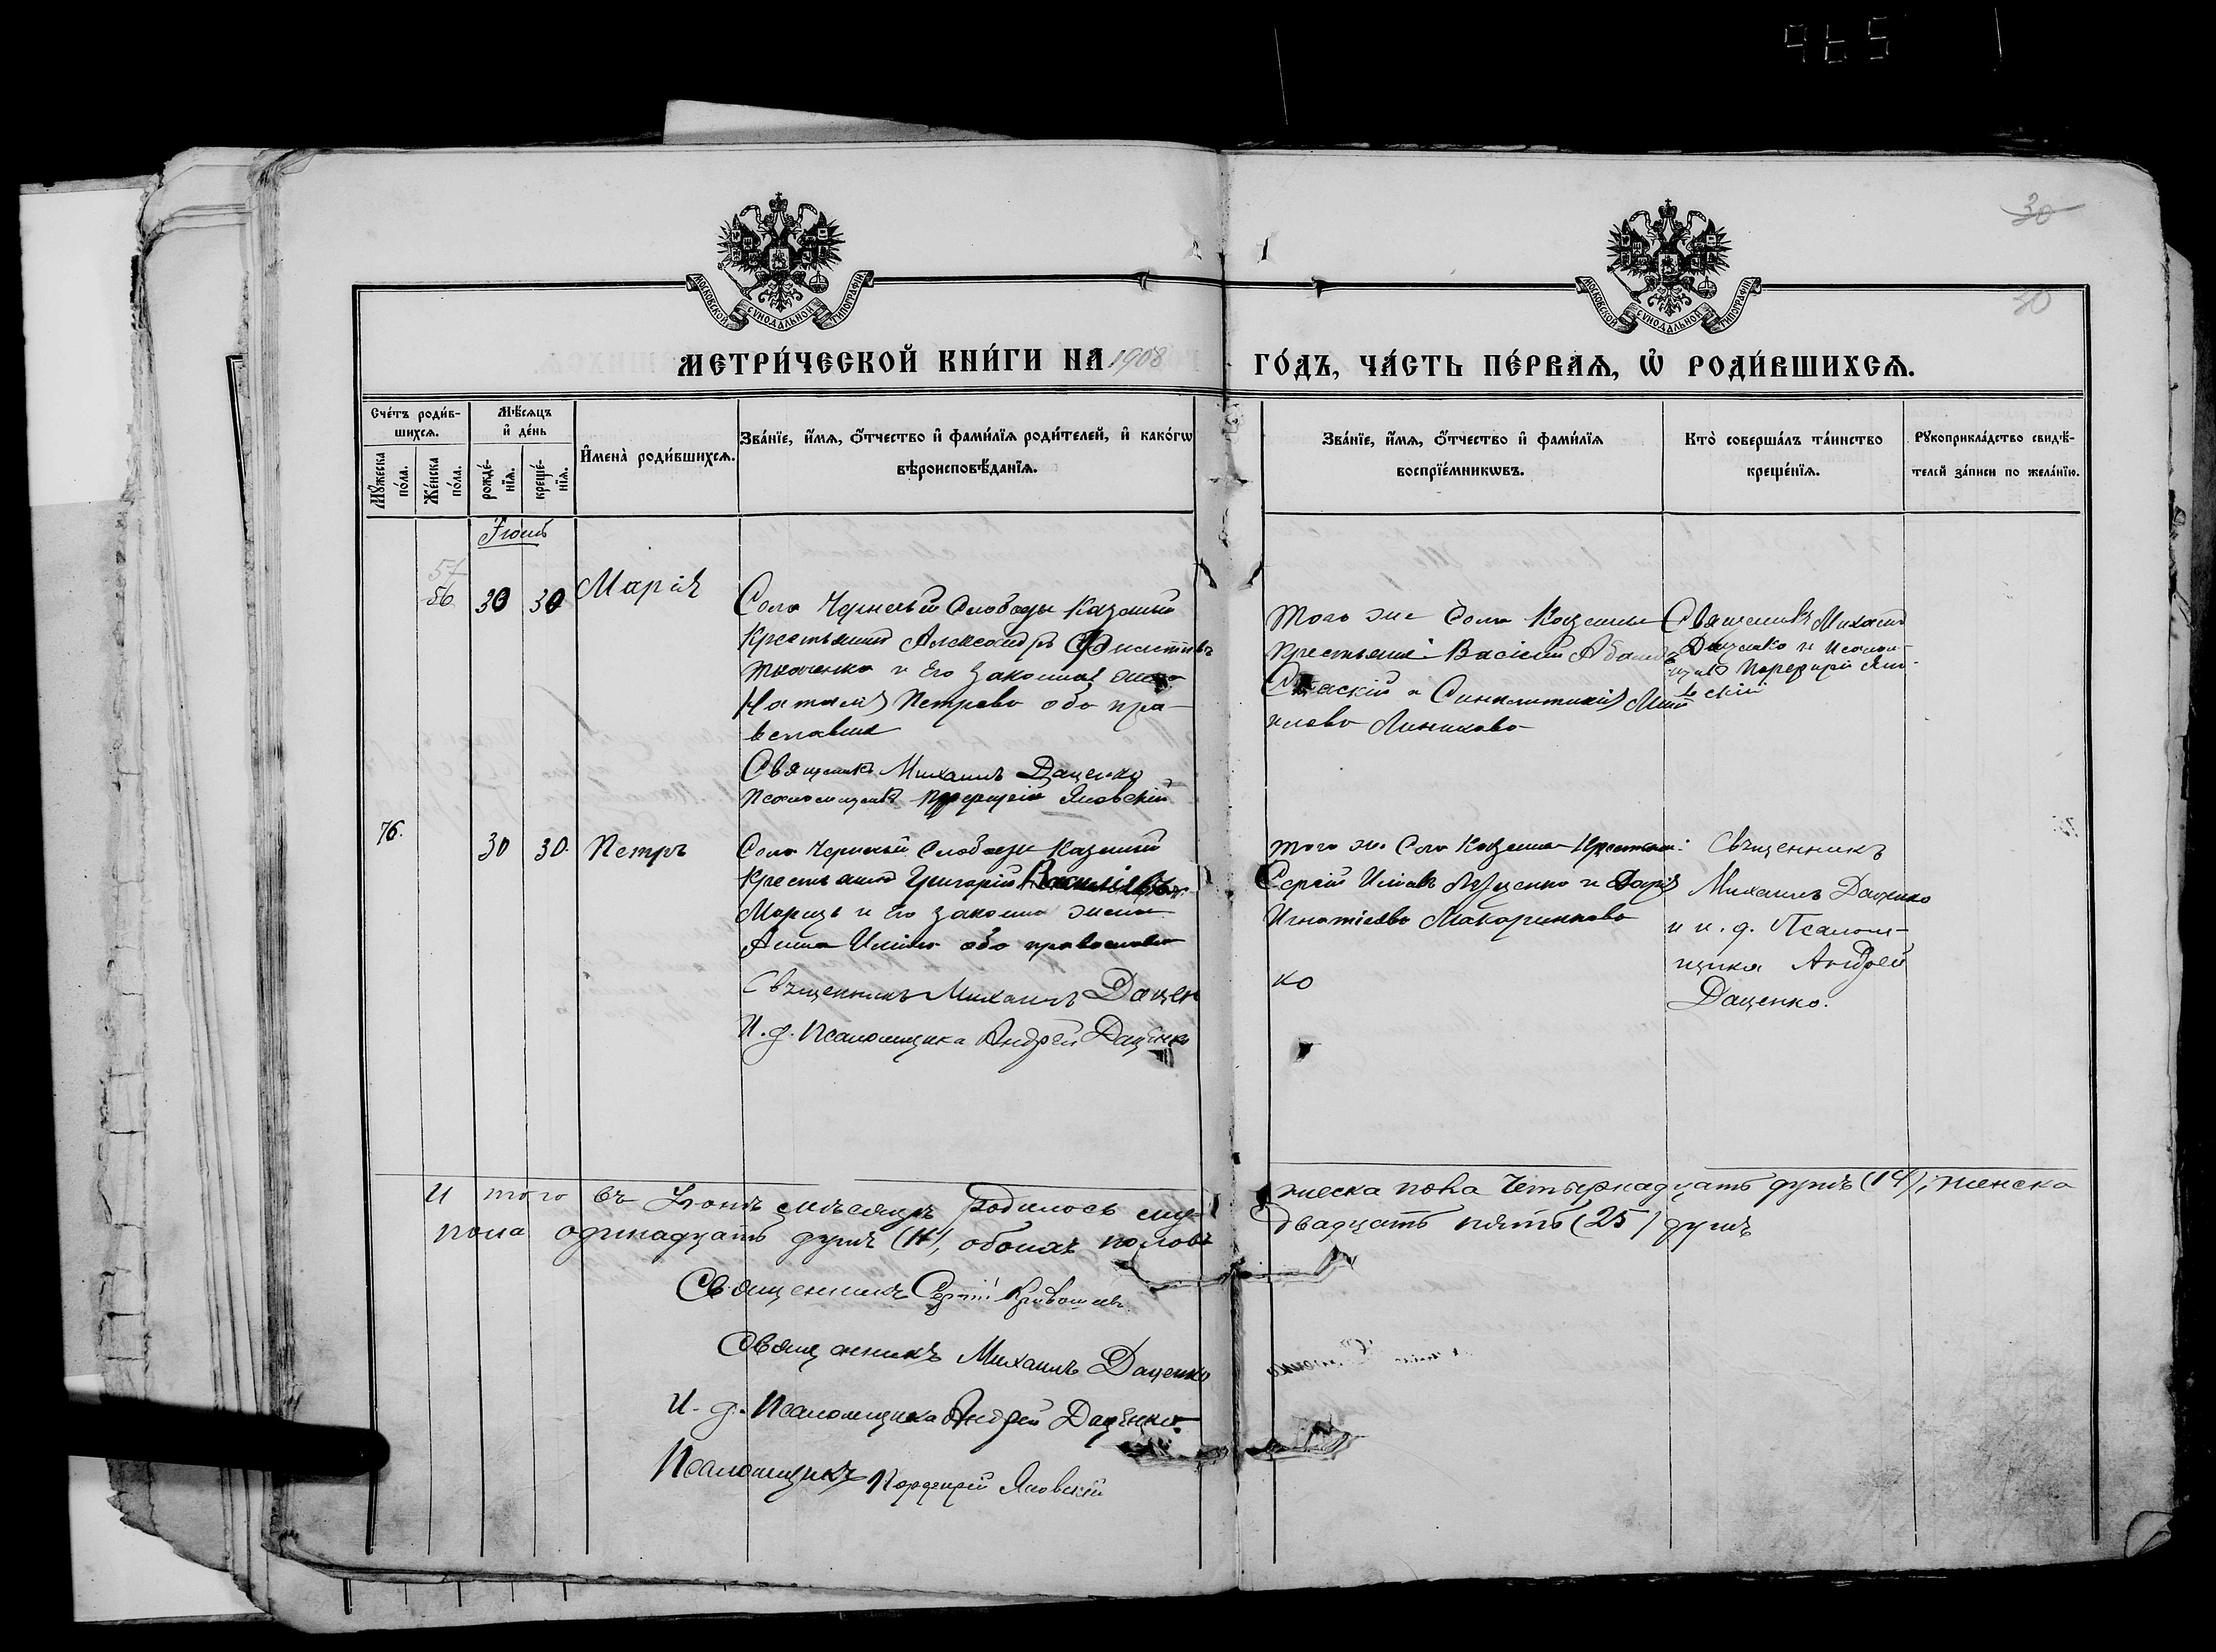 965
30
30
МОСКОВСКОЙ СУНОДАЛЬНОЙ ТИПОГРАФІИ
МОСКОВСКОЙ СУНОДАЛЬНОЙ ТИПОГРАФІИ
МЕТРИ́ЧЕСКОЙ КНИ́ГИ НА 1908 ГО́ДЪ, ЧА́СТЬ ПЕ́РВАѦ, Ѡ҆ РОДИ́ВШИХСѦ.
Сче́тъ роди́в-
шихсѧ.
Мꙋ́жеска по́ла.
Же́нска по́ла.
Мѣ́сѧцъ
и҆ де́нь
рожде́-
нїѧ.
креще́-
нїѧ.
И҆мена̀ роди́вшихсѧ.
Зва́нїе, и҆́мѧ, ѻ҆́тчество и҆ фами́лїѧ роди́телей, и҆ како́гѡ
вѣроисповѣ́данїѧ.
Зва́нїе, и҆́мѧ, ѻ҆́тчество и҆ фами́лїѧ
воспрїе́мникѡвъ.
Кто̀ соверша́лъ та́инство
креще́нїѧ.
Рꙋкоприкла́дство свидѣ́-
телей за́писи по жела́нїю.
Іюнь
57
56
30 30 Марія
Села Черначьей Слободы Казенный
Крестьянинъ Александръ
Ткаченко и его законная жена
Наталія Петрова оба пра-
вославные
Священникъ Михаилъ Даценко
Псаломщикъ Порфирій Яновскій
Того же Села Казенный
крестьянинъ Василій
и Синклитикія
Линникова
Священникъ Михаилъ
Даценко и Псалом-
щикъ Порфирій Яно-
вскій
76.
30 30. Петръ
Села Черначьей Слободы Казенный
Крестьянинъ Григорій Василіевъ
и его законная жена
Анна оба православные
Священникъ Михаилъ Дацен
ко
И. д. Псаломщика Андрей Даценко
того же Села Казенный Крестьян:
Сергій и Дарія
Игнатіева Макаренкова
Священникъ
Михаилъ Даценко
и и. д. Псалом-
щика Андрей
Даценко.
И того въ Іюнѣ мѣсяцѣ родилось му-
жеска пола четырнадцать душъ (14), женска
пола одинадцать душъ (11), обоихъ половъ
двадцать пять (25) душъ
Священникъ Сергій
Священникъ Михаилъ Даценко
И. д. Псаломщика Андрей Даценко
Псаломщикъ Порфирій Яновскій